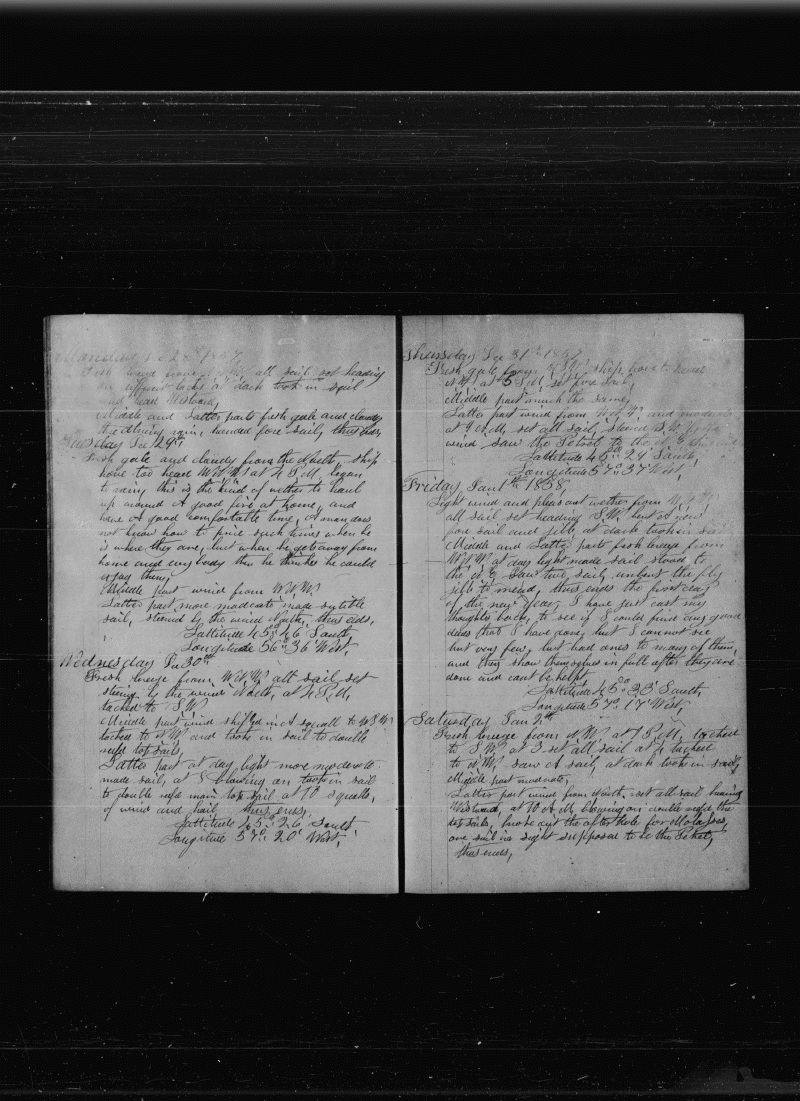 Monday Dec 28th 1857
Fresh breeze from all sail set heading
on different tacks at dark took in sail
and head Westward,
Middle and Latter parts fresh gale and cloudy
rain, fore sail, thus ends,
Tuesday Dec 29th
Fresh gale and cloudy from the North, ship
hove too head W.N.W. at 4 P.M. began
to rainy this is the kind of wether to haul
up around A good fire at home, and
have A good comfortable time, A man does
not know how to prise such times when he
is where they are, but when he gets away from
home and every body then he thinkes he could
enjoy them,
Middle part wind from W.N.W.
Latter part more moderate made sutible
sail, steered by the wind North, thus eids,
Lattitude 45° 46' South
Longitude 56° 36' West,
Wednesday Dec 30th
Fresh breeze from W.N.W. all sail set
steering by the wind North, at 4 P.M.
tacked to S W
Middle part wind shifted in A squall to W.S.W.
tacked to N W and took in sail to double
reefd top sails,
Latter part at day light more moderate
made sail, at 8 blowing on took in sail
to double reefs main top sail at 10 squalls,
of wind and hail, thus ends,
Lattitude 45° 26' South
Longitude 57° 20' West,
Thursday Dec 31st 1857
Fresh gale from ship hove to
at 5 P.M. set fore sail,
Middle part much the same,
Latter part wind from and moderate
at 9 A.M. set all sail, steered S.W. by the
wind saw the to the N.E.
Lattitude 46° 24' South,
Longitude 57° 37' West,
Friday Jan 1th 1858,
Light wind and pleasant wether from
all sail set heading S.W. bent A new
fore sail and jibb, at dark took in sail
Middle and Latter parts fresh breeze from
W.N.W. at day light made sail stood to
the N.E. saw two sail, unbent the fly
jibb to mend, thus ends the first day
of the new year, I have just cast my
thoughts back, to see if I could find any good
deeds that I have done, but I cannot see
but very few, but bad ones to many of them,
and they show themselves in full after they are
done and cant be helpt,
Lattitude 45° 23' South
Longitude 57° 17' West,
Saturday Jan 2th
Fresh breeze from N.W. at 1 P.M. tacked
to S W, at 3 set all sail at 4 tacked
to N.W. saw A sail, at dark took in sail,
Middle part moderate,
Latter part wind from North, set all sail heading
Westward, at 10 A.M. blowing on double reefd the
top sails, broke out the after hole for Molasses,
one sail in sight supposed to be the
thus ends,